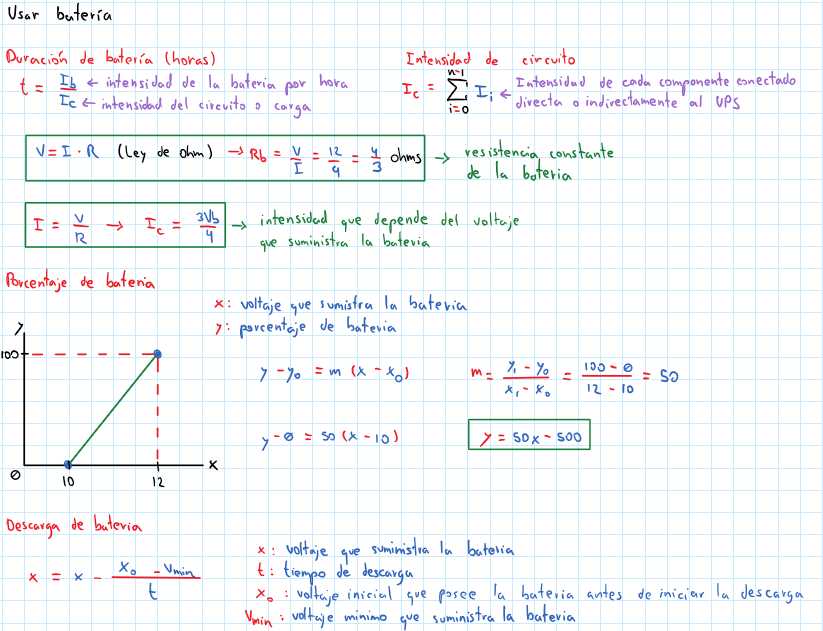 Usar batería
Duración de batería (horas)
t = Ib/Ic
← intensidad de la bateria por hora
← intensidad del circuito o carga
Intensidad de circuito
Ic = n-1 ∑ i=0 Ii ← Intensidad de cada componente conectado
directa o indirectamente al UPS
V = I · R (Ley de ohm) → Rb = V/I = 12/9 = 4/3 ohms → resistencia constante
de la bateria
I = V/R → Ic = 3Vb/4 → intensidad que depende del voltaje
que suministra la bateria
Porcentaje de bateria
x: voltaje que sumistra la bateria
y: porcentaje de bateria
y
100
0
10
12
x
y - y0 = m (x - x0)
m = y1 - y0 / x1 - x0 = 100 - 0 / 12 - 10 = 50
y - 0 = 50 (x - 10)
y = 50x - 500
Descarga de bateria
x = x - x0 - Vmin / t
x: voltaje que suministra la bateria
t: tiempo de descarga
x0: voltaje inicial que posee la bateria antes de iniciar la descarga
Vmin: voltaje minimo que suministra la bateria